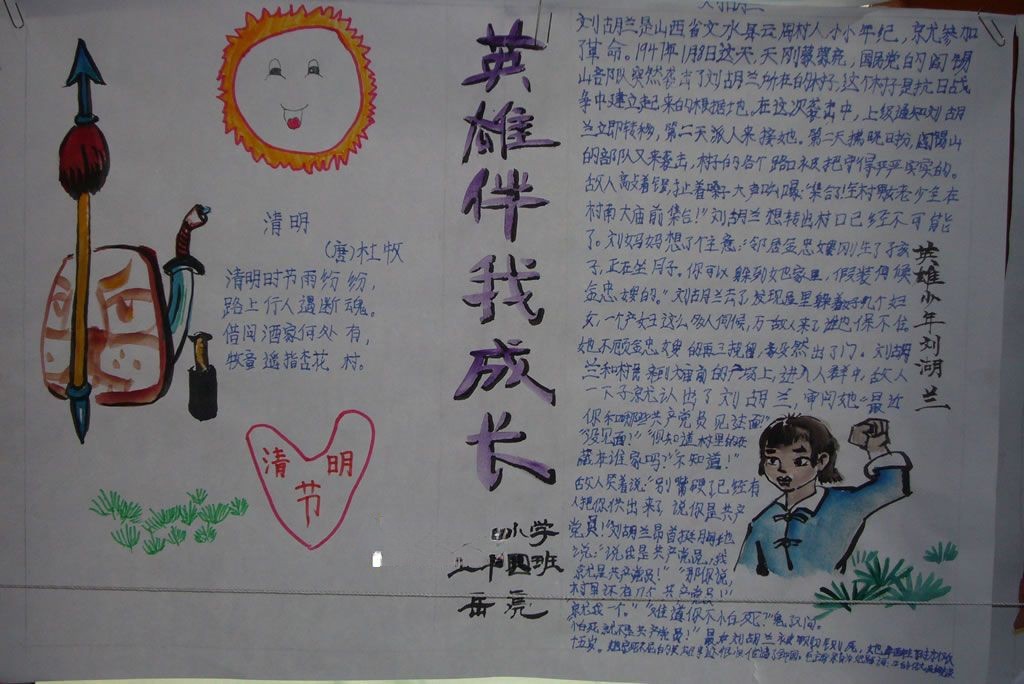 清明
(唐)杜牧
清明时节雨纷纷,
路上行人遇断魂。
借问酒家何处有,
牧童遥指杏花村。
清明节
英雄伴我成长
小学
四班
岳亮
刘胡兰
刘胡兰是山西省文水县云周村人,小小年纪,就参加
了革命。1947年1月8日这天,天刚蒙蒙亮,国民党的阎锡
山部队突然袭击了刘胡兰所在的村子,这个村子是抗日战
争中建立起来的根据地,在这次袭击中,上级通知刘胡
兰立即转移,第二天派人来接她。第二天拂晓时分,阎锡山
的部队又来袭击,村子的各个路口被把守得严严实实的。
敌人高敲着锣,扯着嗓子大声叫嚷:“集合!全村男女老少全在
村南大庙前集合!”刘胡兰想转出村口已经不可能
了。刘妈妈想了个主意:“邻居金忠嫂刚生了孩
子,正在坐月子。你可以躲到她家里,假装伺候
金忠嫂的。”刘胡兰去了发现屋里躲着好几个妇
女,一个产妇这么多人伺候,万一敌人来了谁也保不住,
她不顾金忠嫂的再三规劝,毅然出了门。刘胡
兰和村民来到大庙前的广场上,进入人群中,敌人
一下子就认出了刘胡兰,审问她“最近
你和哪些共产党员见过面?”
“没见面!”“你知道村里的
藏在谁家吗?”“不知道!”
敌人哭着说:“别嘴硬,已经有
人把你供出来了,说你是共产
党员!”刘胡兰昂首挺胸地
说:“说我是共产党员,我
就是共产党员!”“那你说,
村里还有几个共产党员!”
就我一个。”“难道你不怕死?”
怕死就不是共产党员!”
十五岁。
英雄少年刘湖兰